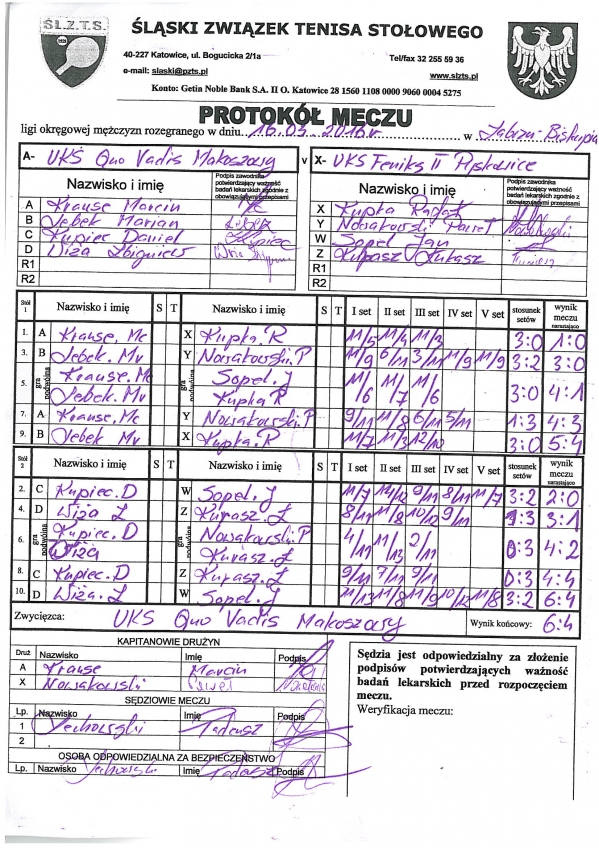 ŚL.Z.T.S.
ŚLĄSKI ZWIĄZEK TENISA STOŁOWEGO
40-227 Katowice, ul. Bogucicka 2/1a Tel/fax 32 255 59 36
e-mail: slaski@pzts.pl www.slzts.pl
Konto: Getin Noble Bank S.A. II O. Katowice 28 1560 1108 0000 9060 0004 5275
PROTOKÓŁ MECZU
ligi okręgowej mężczyzn rozegranego w dniu 16.03.2016r. w Zabrzu-Biskupia
A- UKS Quo Vadis Makoszowy v X- UKS Feniks II Pyskowice
Nazwisko i imię Podpis zawodnika potwierdzający ważność badań lekarskich zgodnie z obowiązującymi przepisami Nazwisko i imię Podpis zawodnika potwierdzający ważność badań lekarskich zgodnie z obowiązującymi przepisami
A Krause Marcin X Kupka
B Jebek Marian Y Nowakowski Paweł
C Kupiec Daniel W Sopel Jan
D Wiża Zbigniew Z Łukasz
R1 R1
R2 R2
Stół 1 Nazwisko i imię S T Nazwisko i imię S T I set II set III set IV set V set stosunek setów wynik meczu narastająco
1. A Krause, Mc X Kupka. R 11/5 11/4 11/3 3:0 1:0
3. B Jebek. Mr Y Nowakowski. P 11/9 6/11 3/11 11/9 11/9 3:2 3:0
5. gra podwójna Krause. Mc Sopel. J 11/6 11/7 11/6 3:0 4:1
Jebek. Mr gra podwójna Kupka R
7. A Krause, Mc Y Nowakowski. P 9/11 11/8 6/11 5/11 1:3 4:3
9. B Jebek Mr X Kupka. R 11/7 11/3 12/10 3:0 5:4
Stół 2 Nazwisko i imię S T Nazwisko i imię S T I set II set III set IV set V set stosunek setów wynik meczu narastająco
2. C Kupiec. D W Sopel. J 11/7 14/12 9/11 8/11 11/7 3:2 2:0
4. D Wiża Z Z 8/11 11/8 10/12 9/11 1:3 3:1
6. gra podwójna Kupiec. D gra podwójna Nowakowski. P 4/11 11/13 2/11 0:3 4:2
Wiża
8. C Kupiec. D Z 9/11 7/11 9/11 0:3 4:4
10. D Wiża. Z W Sopel. J 11/13 11/8 11/9 10/12 11/8 3:2 6:4
Zwycięzca: UKS Quo Vadis Makoszowy Wynik końcowy: 6:4
KAPITANOWIE DRUŻYN
Druż Nazwisko Imię Podpis
A Krause Marcin
X Nowakowski Paweł
SĘDZIOWIE MECZU
Lp. Nazwisko Imię Podpis
1 Tadeusz
2
OSOBA ODPOWIEDZIALNA ZA BEZPIECZEŃSTWO
Lp. Nazwisko Imię Tadeusz Podpis
Sędzia jest odpowiedzialny za złożenie
podpisów potwierdzających ważność
badań lekarskich przed rozpoczęciem
meczu.
Weryfikacja meczu: